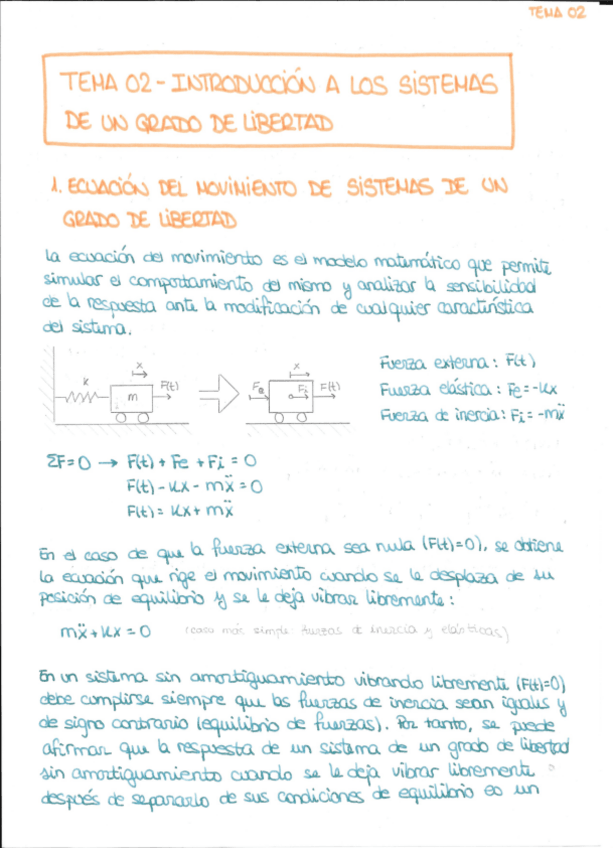 TEMA 02
TEMA 02 - INTRODUCCIÓN A LOS SISTEMAS
DE UN GRADO DE LIBERTAD
1. ECUACIÓN DEL MOVIMIENTO DE SISTEMAS DE UN
GRADO DE LIBERTAD
La ecuación del movimiento es el modelo matemático que permite
simular el comportamiento del mismo y analizar la sensibilidad
de la respuesta ante la modificación de cualquier característica
del sistema.
x
k
m
F(t)
x
Fe
Fi
F(t)
Fuerza externa: F(t)
Fuerza elástica: Fe=-kx
Fuerza de inercia: Fi=-mẍ
ΣF=0 → F(t) + Fe + Fi = 0
F(t) - kx - mẍ = 0
F(t) = kx + mẍ
En el caso de que la fuerza externa sea nula (F(t)=0), se obtiene
la ecuación que rige el movimiento cuando se le desplaza de su
posición de equilibrio y se le deja vibrar libremente:
mẍ + kx = 0 (caso más simple: fuerzas de inercia y elásticas)
En un sistema sin amortiguamiento vibrando libremente (F(t)=0)
debe cumplirse siempre que las fuerzas de inercia sean iguales y
de signo contrario (equilibrio de fuerzas). Por tanto, se puede
afirmar que la respuesta de un sistema de un grado de libertad
sin amortiguamiento cuando se le deja vibrar libremente
después de separarlo de sus condiciones de equilibrio es un